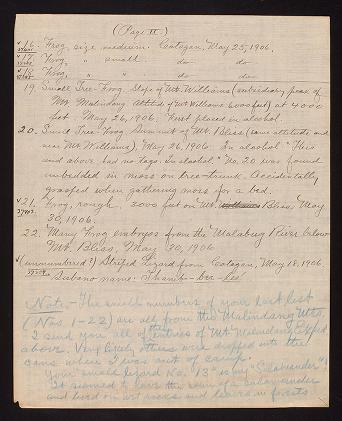 (Page II.)
16. Frog, size medium. Catagan, May 25, 1906.
17. Frog, " small. do do
18. Frog, " " do do
19. Small Tree-Frog. Slope of Mt. Williams (subsidiary peak of
Mt. Malindang. Altitude of Mt Williams 6000 feet) at 4000
feet. May 26, 1906. First placed in alcohol.
20. Small Tree-Frog Summit of Mt. Bliss (same altitude and
near Mt. Williams). May 26, 1906. In alcohol. This
and above had no tags. In alcohol. No. 20 was found
imbedded in moss on tree-trunk. Accidentally
grasped when gathering moss for a bed.
21. Frog, rough. 3000 feet on Mt. Bliss, May
30, 1906.
22. Many Frog embryos from the Malabug River below
Mt. Bliss, May 30, 1906
(unnumbered?) Striped Lizard from Catagan, May 18, 1906
Subano name:
Note. - The small numbers of your last list
(Nos. 1-22) are all from the Malindang Mts.
I send you all of entries of Mt. Malindang Exped
above. Very likely others were dropped into the
cans when I was out of camp.
Your small lizard No. 13 is my "Salamander"!
It seemed to have the form of a salamander
and lived on wet rocks and leaves in forests.